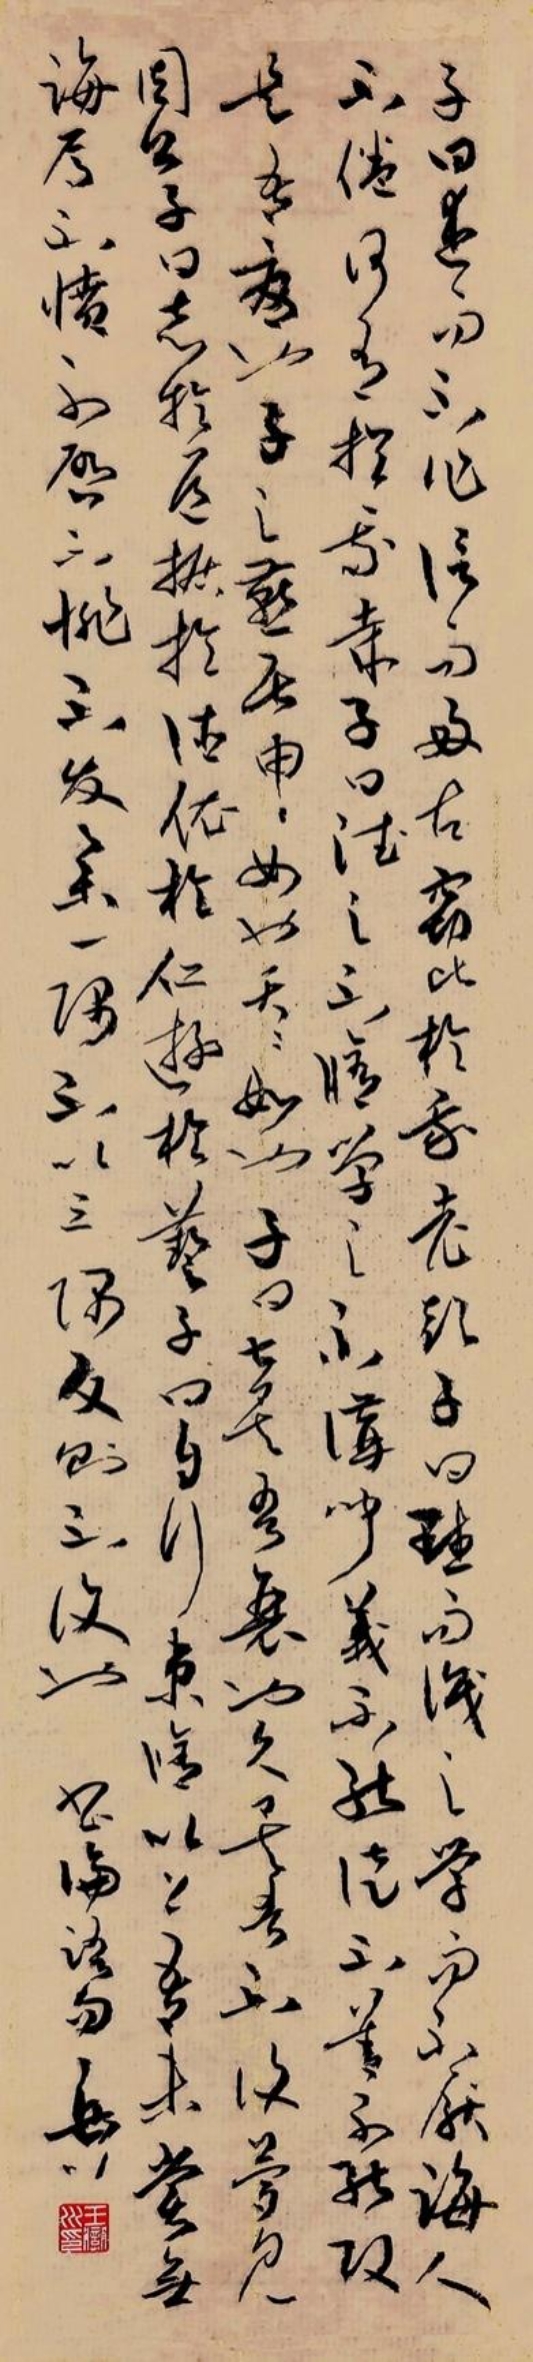 子曰述而不作信而好古窃比於我老彭子曰默而识之学而不厌诲人
不倦何有於我哉子曰德之不脩学之不講闻義不能徙不善不能改
是吾憂也子之燕居申〻如也夭〻如也子曰甚矣吾衰也久矣吾不復夢見
周公子曰志於道據於德依於仁遊於藝子曰自行束脩以上吾未嘗無
誨焉不憤不啟不悱不发举一隅不以三隅反则不復也 书論語句